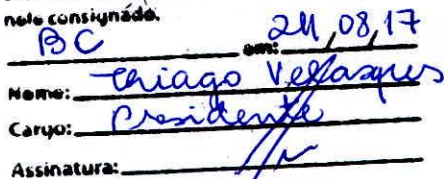 nele consignado.
BC em: 24,08,17
Nome: Thiago Vellasques
Cargo: Presidente
Assinatura: